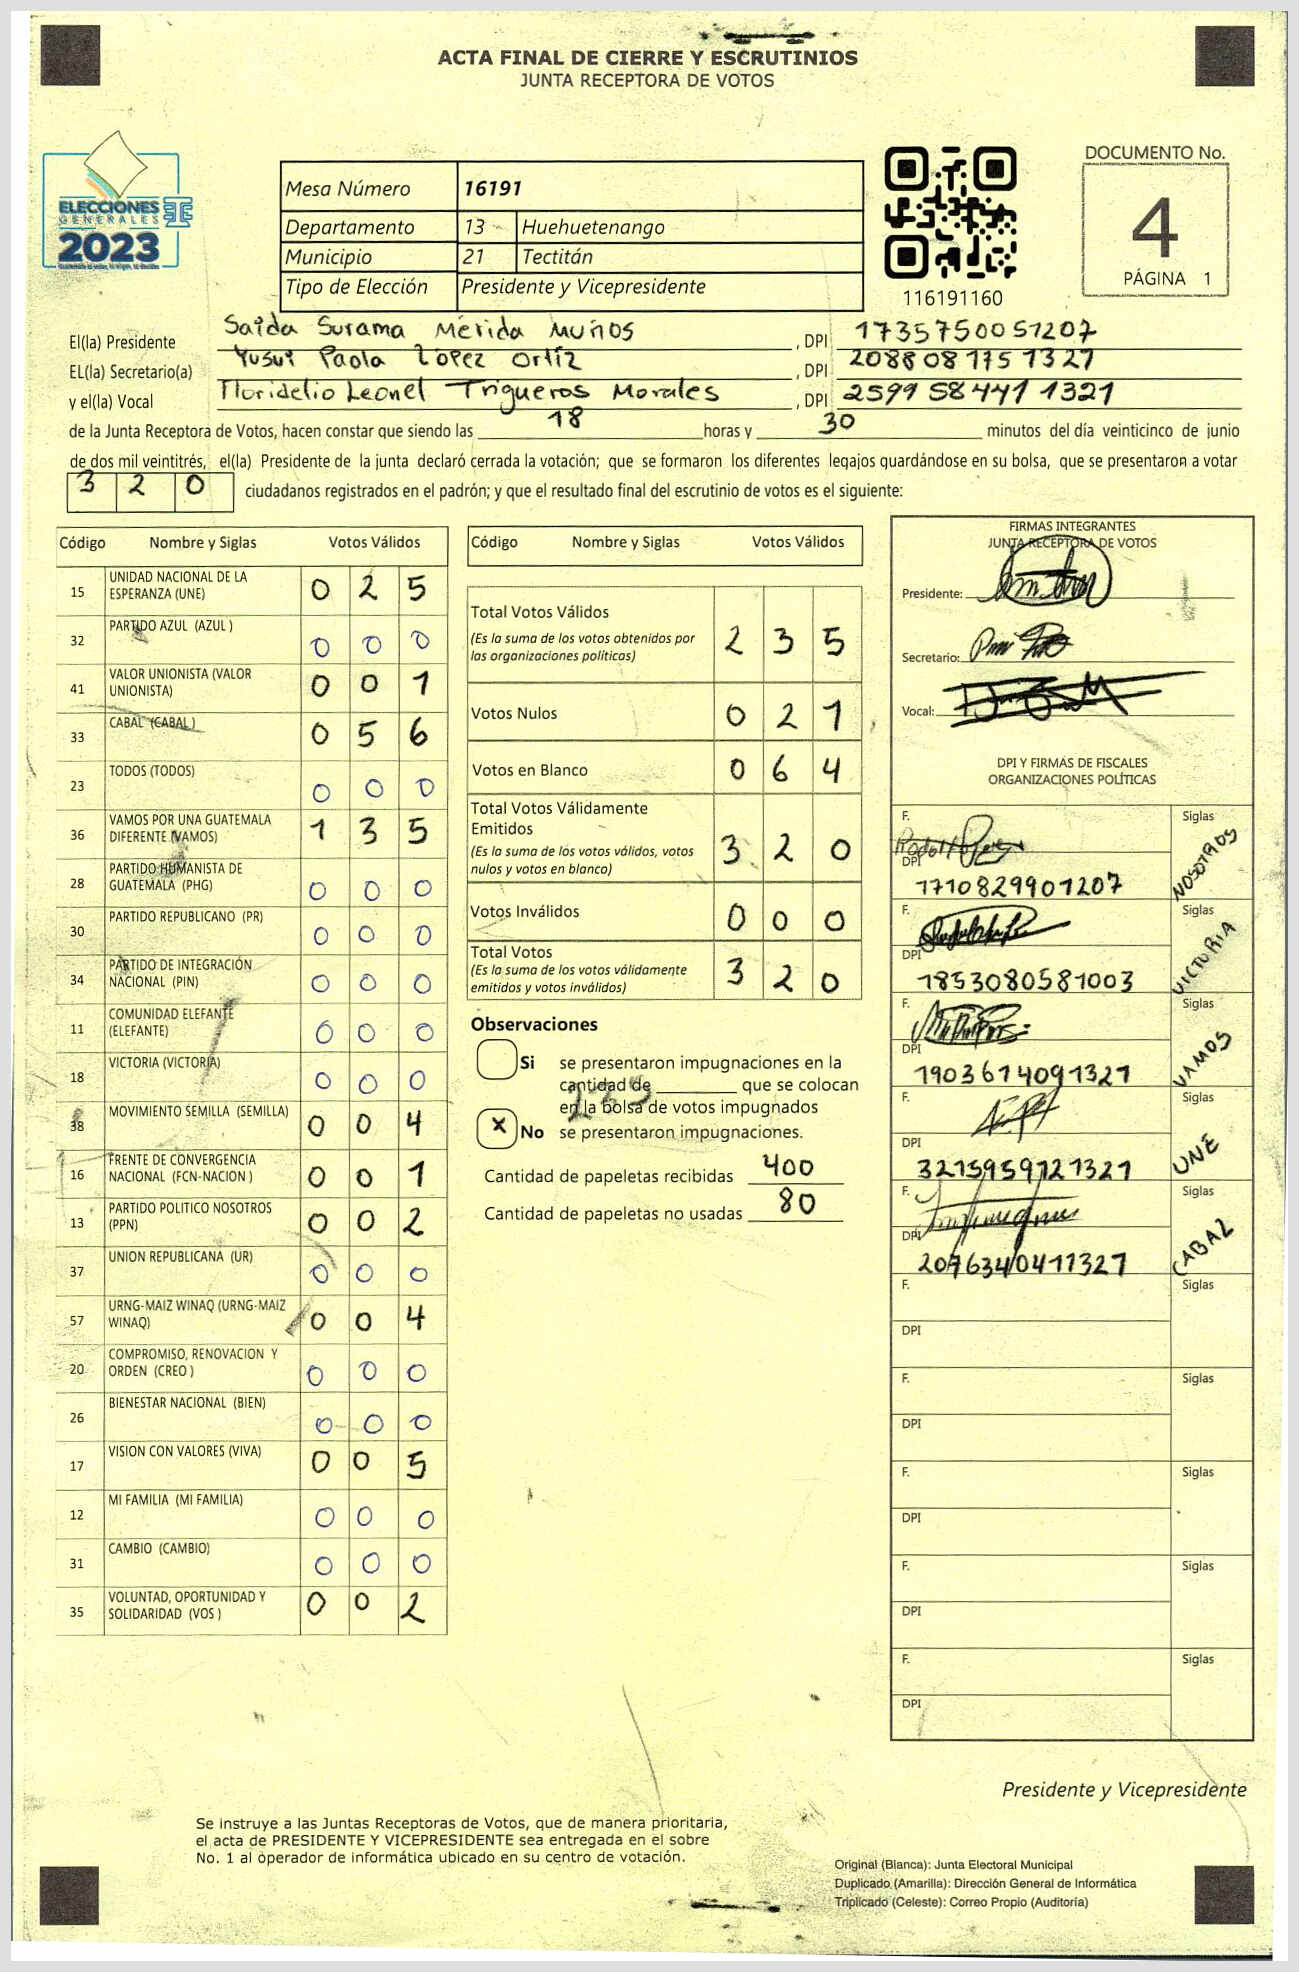 ACTA FINAL DE CIERRE Y ESCRUTINIOS
JUNTA RECEPTORA DE VOTOS
ELECCIONES
GENERALES
2023
Mesa Número 16191
Departamento 13 Huehuetenango
Municipio 21 Tectitán
Tipo de Elección Presidente y Vicepresidente
116191160
DOCUMENTO No.
4
PÁGINA 1
El(la) Presidente Saida Surama Mérida Muños , DPI 1735750051207
EL(la) Secretario(a) Yusui Paola López Ortíz , DPI 2088081751321
y el(la) Vocal Floridelio Leonel Trigueros Morales , DPI 2599584471321
de la Junta Receptora de Votos, hacen constar que siendo las 18 horas y 30 minutos del día veinticinco de junio
de dos mil veintitrés, el(la) Presidente de la junta declaró cerrada la votación; que se formaron los diferentes legajos guardándose en su bolsa, que se presentaron a votar
320 ciudadanos registrados en el padrón; y que el resultado final del escrutinio de votos es el siguiente:
Código Nombre y Siglas Votos Válidos
15 UNIDAD NACIONAL DE LA ESPERANZA (UNE) 0 2 5
32 PARTIDO AZUL (AZUL ) 0 0 0
41 VALOR UNIONISTA (VALOR UNIONISTA) 0 0 1
33 CABAL (CABAL ) 0 5 6
23 TODOS (TODOS) 0 0 0
36 VAMOS POR UNA GUATEMALA DIFERENTE (VAMOS) 1 3 5
28 PARTIDO HUMANISTA DE GUATEMALA (PHG) 0 0 0
30 PARTIDO REPUBLICANO (PR) 0 0 0
34 PARTIDO DE INTEGRACIÓN NACIONAL (PIN) 0 0 0
11 COMUNIDAD ELEFANTE (ELEFANTE) 0 0 0
18 VICTORIA (VICTORIA) 0 0 0
38 MOVIMIENTO SEMILLA (SEMILLA) 0 0 4
16 FRENTE DE CONVERGENCIA NACIONAL (FCN-NACION ) 0 0 1
13 PARTIDO POLITICO NOSOTROS (PPN) 0 0 2
37 UNION REPUBLICANA (UR) 0 0 0
57 URNG-MAIZ WINAQ (URNG-MAIZ WINAQ) 0 0 4
20 COMPROMISO, RENOVACION Y ORDEN (CREO ) 0 0 0
26 BIENESTAR NACIONAL (BIEN) 0 0 0
17 VISION CON VALORES (VIVA) 0 0 5
12 MI FAMILIA (MI FAMILIA) 0 0 0
31 CAMBIO (CAMBIO) 0 0 0
35 VOLUNTAD, OPORTUNIDAD Y SOLIDARIDAD (VOS ) 0 0 2
Código Nombre y Siglas Votos Válidos
Total Votos Válidos 2 3 5
(Es la suma de los votos obtenidos por
las organizaciones políticas)
Votos Nulos 0 2 1
Votos en Blanco 0 6 4
Total Votos Válidamente
Emitidos 3 2 0
(Es la suma de los votos válidos, votos
nulos y votos en blanco)
Votos Inválidos 0 0 0
Total Votos 3 2 0
(Es la suma de los votos válidamente
emitidos y votos inválidos)
Observaciones
Si se presentaron impugnaciones en la
cantidad de que se colocan
en la bolsa de votos impugnados
X No se presentaron impugnaciones.
Cantidad de papeletas recibidas 400
Cantidad de papeletas no usadas 80
FIRMAS INTEGRANTES
JUNTA RECEPTORA DE VOTOS
Presidente:
Secretario:
Vocal:
DPI Y FIRMAS DE FISCALES
ORGANIZACIONES POLÍTICAS
F. Siglas
DPI 1710829901207 NOSOTROS
F. Siglas
DPI 1853080581003 VICTORIA
F. Siglas
DPI 1903614091321 VAMOS
F. Siglas
DPI 3215959121321 UNE
F. Siglas
DPI 2076340411321 CABAL
F. Siglas
DPI
F. Siglas
DPI
F. Siglas
DPI
F. Siglas
DPI
F. Siglas
DPI
Presidente y Vicepresidente
Se instruye a las Juntas Receptoras de Votos, que de manera prioritaria,
el acta de PRESIDENTE Y VICEPRESIDENTE sea entregada en el sobre
No. 1 al operador de informática ubicado en su centro de votación.
Original (Blanca): Junta Electoral Municipal
Duplicado (Amarilla): Dirección General de Informática
Triplicado (Celeste): Correo Propio (Auditoría)